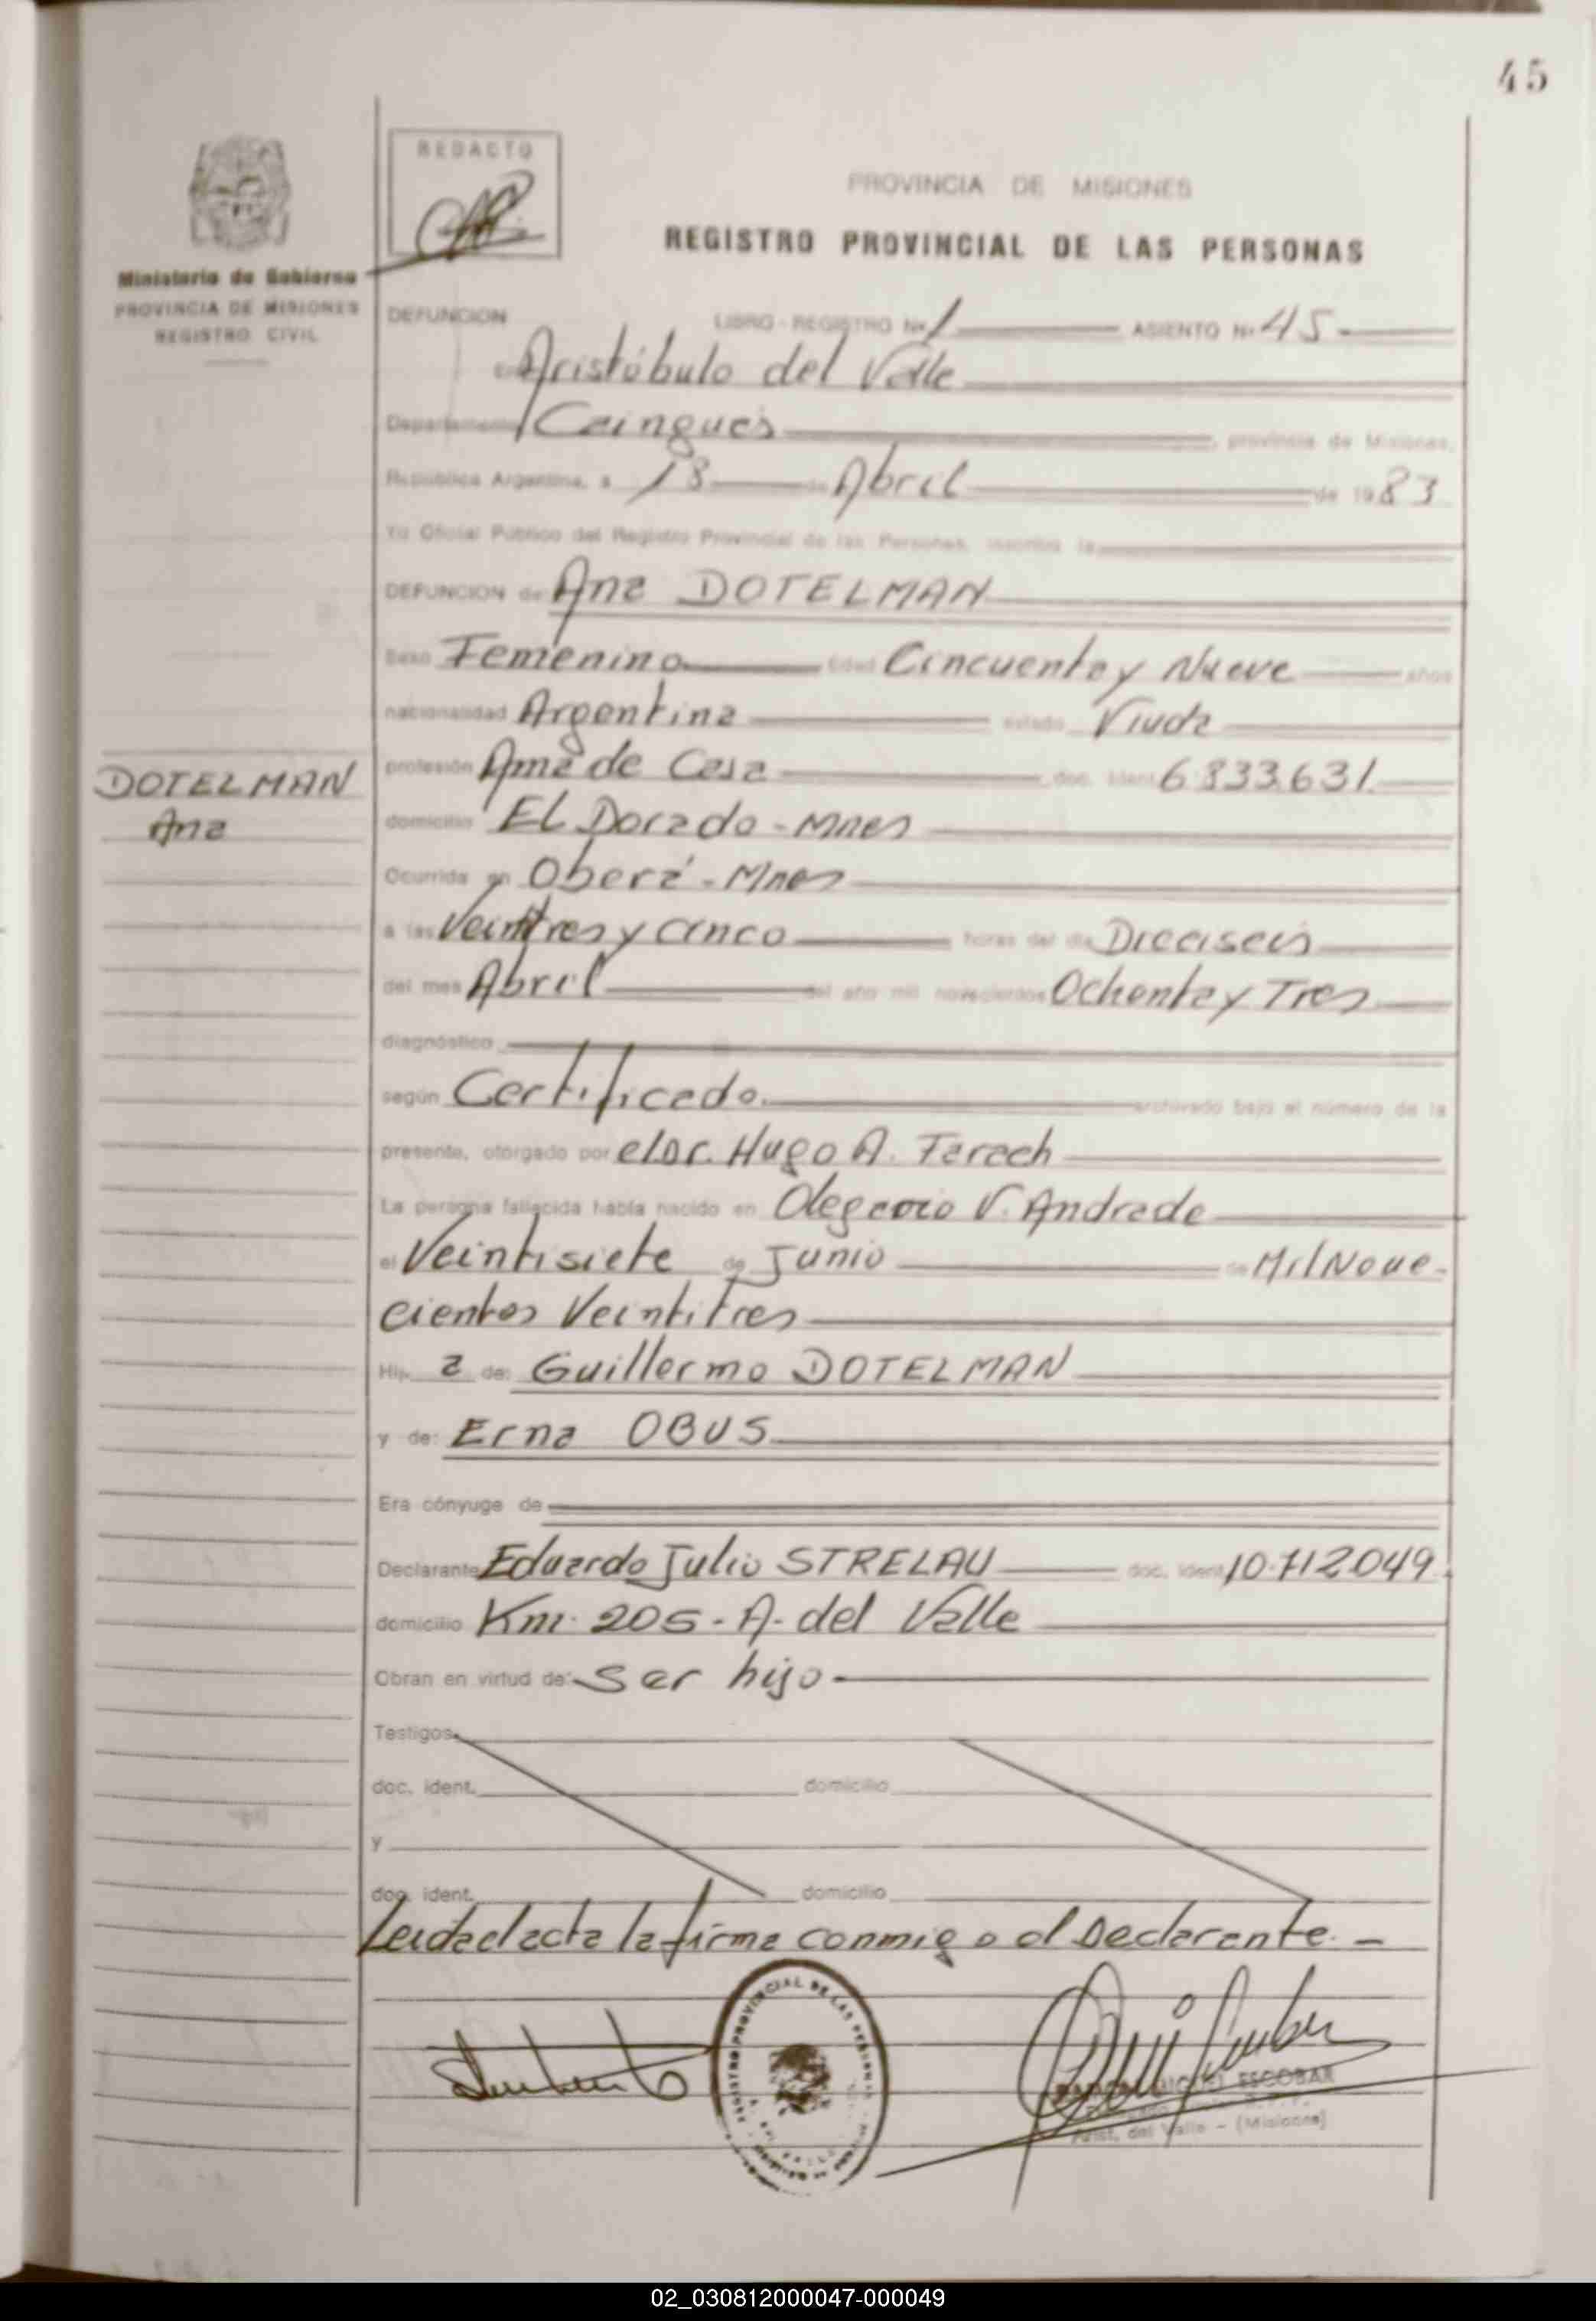 45
REDACTO
PROVINCIA DE MISIONES
REGISTRO PROVINCIAL DE LAS PERSONAS
Ministerio de Gobierno
PROVINCIA DE MISIONES
REGISTRO CIVIL
DEFUNCION LIBRO - REGISTRO Nº 1 ASIENTO Nº 45
En Aristóbulo del Valle
Departamento Cainguás, provincia de Misiones,
República Argentina, a 18 de Abril de 1983
Yo Oficial Público del Registro Provincial de las Personas, inscribo la
DEFUNCION de: Ana DOTELMAN
Sexo Femenino Edad Cincuenta y Nueve años
nacionalidad Argentina estado Viuda
profesión Ama de Casa doc. ident. 6.833.631
DOTELMAN
Ana
domicilio El Dorado - Mnes
Ocurrida en Oberá - Mnes
a las Veintitres y cinco horas del día Dieciseis
del mes Abril del año mil novecientos Ochenta y Tres
diagnóstico
según Certificado archivado bajo el número de la
presente, otorgado por el Dr. Hugo A. Farach
La persona fallecida había nacido en Olegario V. Andrade
el Veintisiete de Junio de Mil Nove-
cientos Veintitres
Hij a de: Guillermo DOTELMAN
y de: Erna OBUS
Era cónyuge de
Declarante Eduardo Julio STRELAU doc. ident. 10.712.049
domicilio Km. 205 - A. del Valle
Obran en virtud de: Ser hijo
Testigos
doc. ident. domicilio
y
doc. ident. domicilio
Leida el acta la firma conmigo el Declarente. -
REGISTRO PROVINCIAL DE LAS PERSONAS
ESCOBAR
Arist. del Valle - (Misiones)
02_030812000047-000049